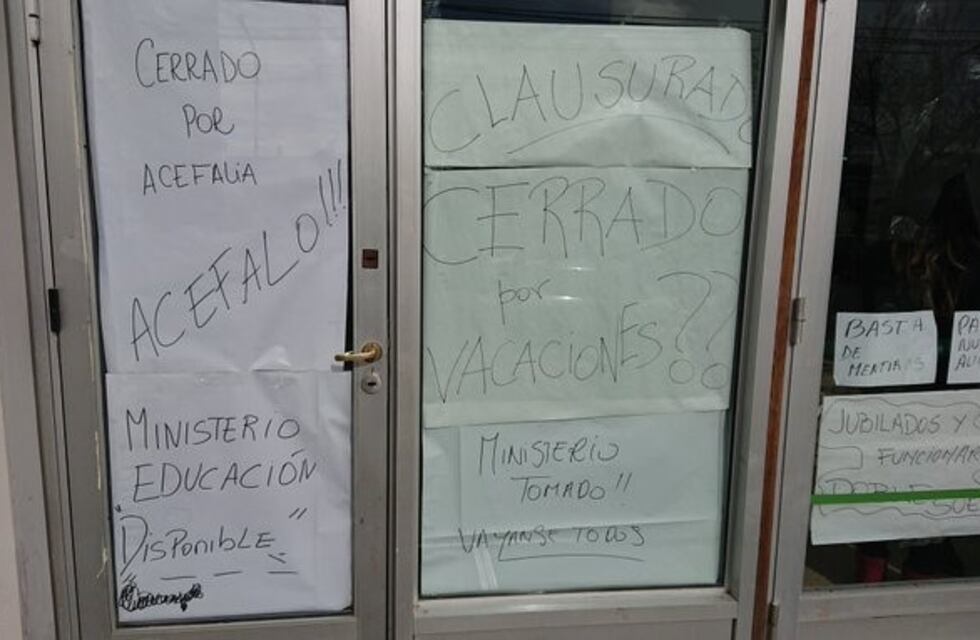 CERRADO
POR
ACEFALIA
ACEFALO!!!
MINISTERIO
EDUCACIÓN
"DISPONIBLE"
CLAUSURADO
CERRADO
por
VACACIONES??
MINISTERIO
TOMADO!!
VAYANSE TODOS
BASTA
DE
MENTIRAS
PA
NU
JUBILADOS Y
FUNCIONAR
DOBLE SUE